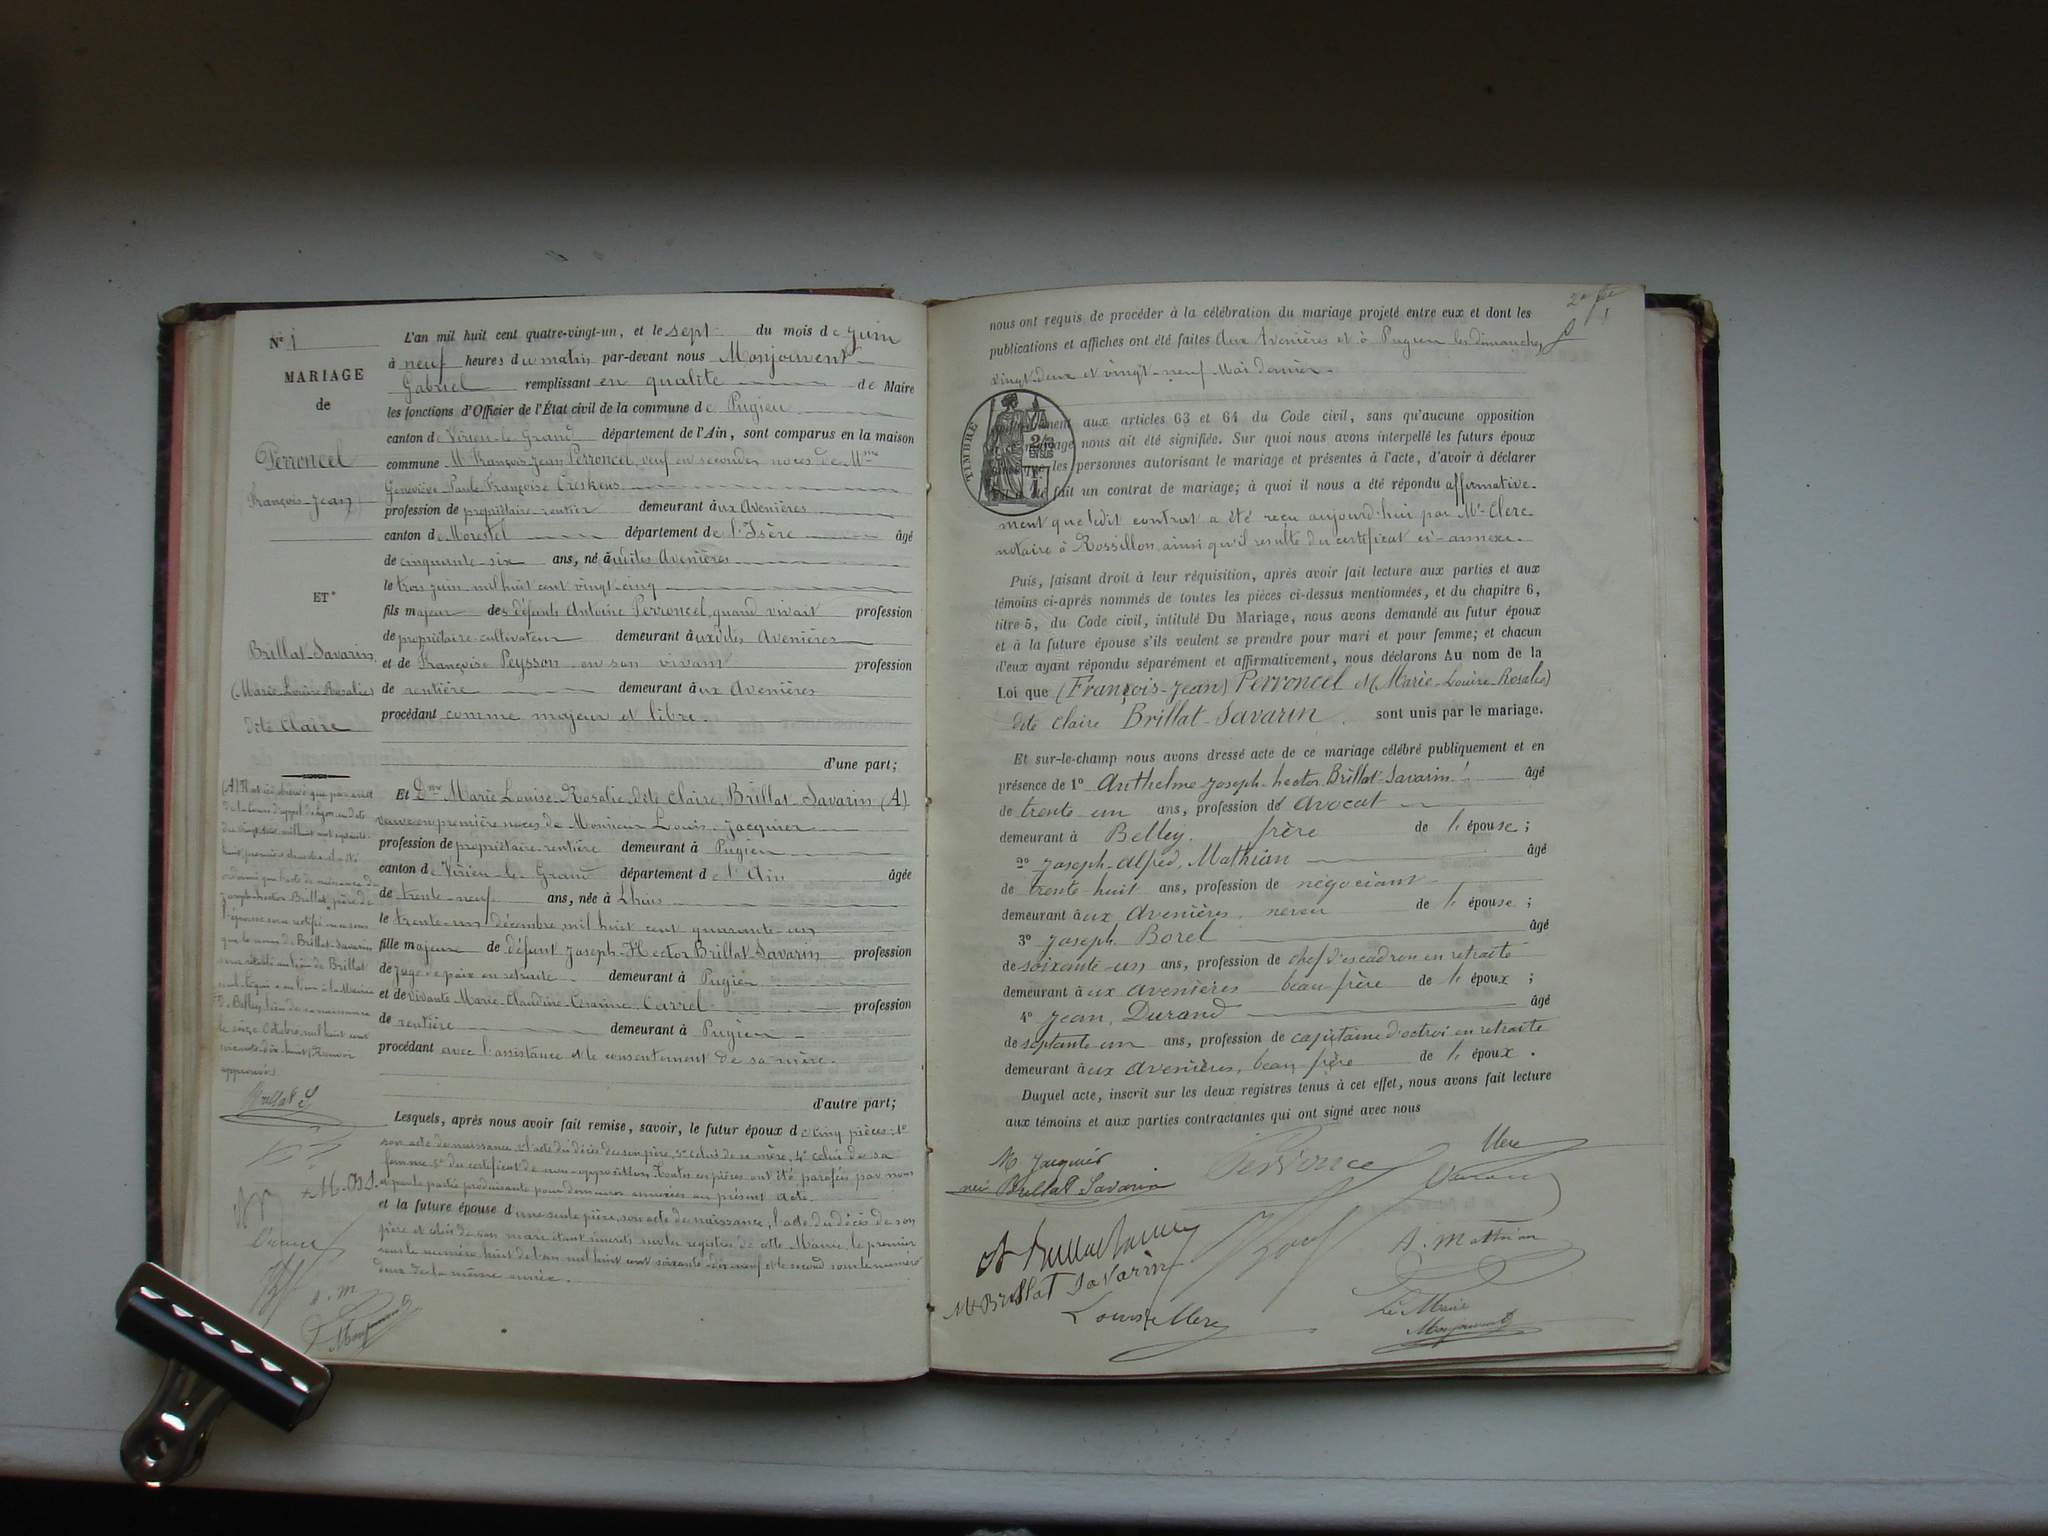 N° 1
MARIAGE
de
Perroncel
François-Jean
ET
Brillat-Savarin
(Marie-Louise-Rosalie)
dite Claire
L'an mil huit cent quatre-vingt-un, et le sept du mois de juin
à neuf heures du matin par-devant nous Monjouvent
Gabriel remplissant en qualité de Maire
les fonctions d'Officier de l'État civil de la commune de Pugieu
canton de Virieu-le-Grand département de l'Ain, sont comparus en la maison
commune M. François-Jean Perroncel, veuf en secondes noces de Mme
Geneviève-Paule-Françoise Creskens
profession de propriétaire-rentier demeurant aux Avenières
canton de Morestel département de l'Isère âgé
de cinquante-six ans, né auxdites Avenières
le trois juin mil huit cent vingt-cinq
fils majeur des défunts Antoine Perroncel, quand vivait profession
de propriétaire-cultivateur demeurant auxdites Avenières
et de Françoise Peysson en son vivant profession
de rentière demeurant aux Avenières
procédant comme majeur et libre.
d'une part;
Et Dme Marie Louise-Rosalie, dite Claire, Brillat-Savarin (A)
veuve en première noces de Monsieur Louis Jacquier
profession de propriétaire-rentière demeurant à Pugieu
canton de Virieu-le-Grand département de l'Ain âgée
de trente-neuf ans, née à Lhuis
le trente-un décembre mil huit cent quarante-un
fille majeure de défunt Joseph-Hector Brillat-Savarin profession
de juge de paix en retraite demeurant à Pugieu
et de vivante Marie-Claudine-Césarine Carrel profession
de rentière demeurant à Pugieu
procédant avec l'assistance et le consentement de sa mère.
d'autre part;
Lesquels, après nous avoir fait remise, savoir, le futur époux de cinq pièces: 1°
son acte de naissance, 2° l'acte du décès de son père, 3° celui de sa mère, 4° celui de sa
femme 5° du certificat de non-opposition. Toutes ces pièces ont été parafées par nous
et par la partie produisante pour demeurer annexées au présent acte.
et la future épouse d'une seule pièce, son acte de naissance, l'acte du décès de son
père et celui de son mari étant inscrits sur les registres de cette Mairie, le premier
sous le numéro huit de l'an mil huit cent soixante-dix-neuf et le second sous le numéro
deux de la même année.
(A) Il est ici observé que par arrêt
de la cour d'appel de Lyon en date
huit, première chambre, il a été
ordonné que l'acte de naissance de
Joseph-Hector Brillat, père de
l'épouse sera rectifié en ce sens
que le nom de Brillat-Savarin
sera rétabli au lieu de Brillat
de Belley, lieu de sa naissance
le seize Octobre, mil huit cent
soixante-dix-huit. Renvoi
approuvé.
Brillat S
A. M
Monjouvent
nous ont requis de procéder à la célébration du mariage projeté entre eux et dont les
publications et affiches ont été faites aux Avenières et à Pugieu les dimanches
vingt-deux et vingt-neuf Mai dernier.
TIMBRE
2/10
EN SUS
aux articles 63 et 64 du Code civil, sans qu'aucune opposition
nous ait été signifiée. Sur quoi nous avons interpellé les futurs époux
les personnes autorisant le mariage et présentes à l'acte, d'avoir à déclarer
fait un contrat de mariage; à quoi il nous a été répondu affirmative-
ment que ledit contrat a été reçu aujourd'hui par Me Clerc
notaire à Rossillon ainsi qu'il résulte du certificat ci-annexé.
Puis, faisant droit à leur réquisition, après avoir fait lecture aux parties et aux
témoins ci-après nommés de toutes les pièces ci-dessus mentionnées, et du chapitre 6,
titre 5, du Code civil, intitulé Du Mariage, nous avons demandé au futur époux
et à la future épouse s'ils veulent se prendre pour mari et pour femme; et chacun
d'eux ayant répondu séparément et affirmativement, nous déclarons Au nom de la
Loi que (François-Jean) Perroncel et (Marie-Louise-Rosalie)
dite Claire Brillat-Savarin sont unis par le mariage.
Et sur-le-champ nous avons dressé acte de ce mariage célébré publiquement et en
présence de 1° Anthelme-Joseph-hector Brillat-Savarin âgé
de trente un ans, profession de Avocat
demeurant à Belley, frère de l'épouse;
2° Joseph-Alfred, Mathian âgé
de trente huit ans, profession de négociant
demeurant aux Avenières neveu de l'épouse;
3° Joseph Borel âgé
de soixante-un ans, profession de chef d'escadron en retraite
demeurant aux Avenières beau frère de l'époux;
4° Jean, Durand âgé
de septante-un ans, profession de capitaine d'octroi en retraite
demeurant aux Avenières, beau frère de l'époux.
Duquel acte, inscrit sur les deux registres tenus à cet effet, nous avons fait lecture
aux témoins et aux parties contractantes qui ont signé avec nous
M Jacquier
née Brillat Savarin
Perroncel
Clerc
Durand
A. Mathian
M Brillat Savarin
Louis Clerc
Le Maire
Monjouvent